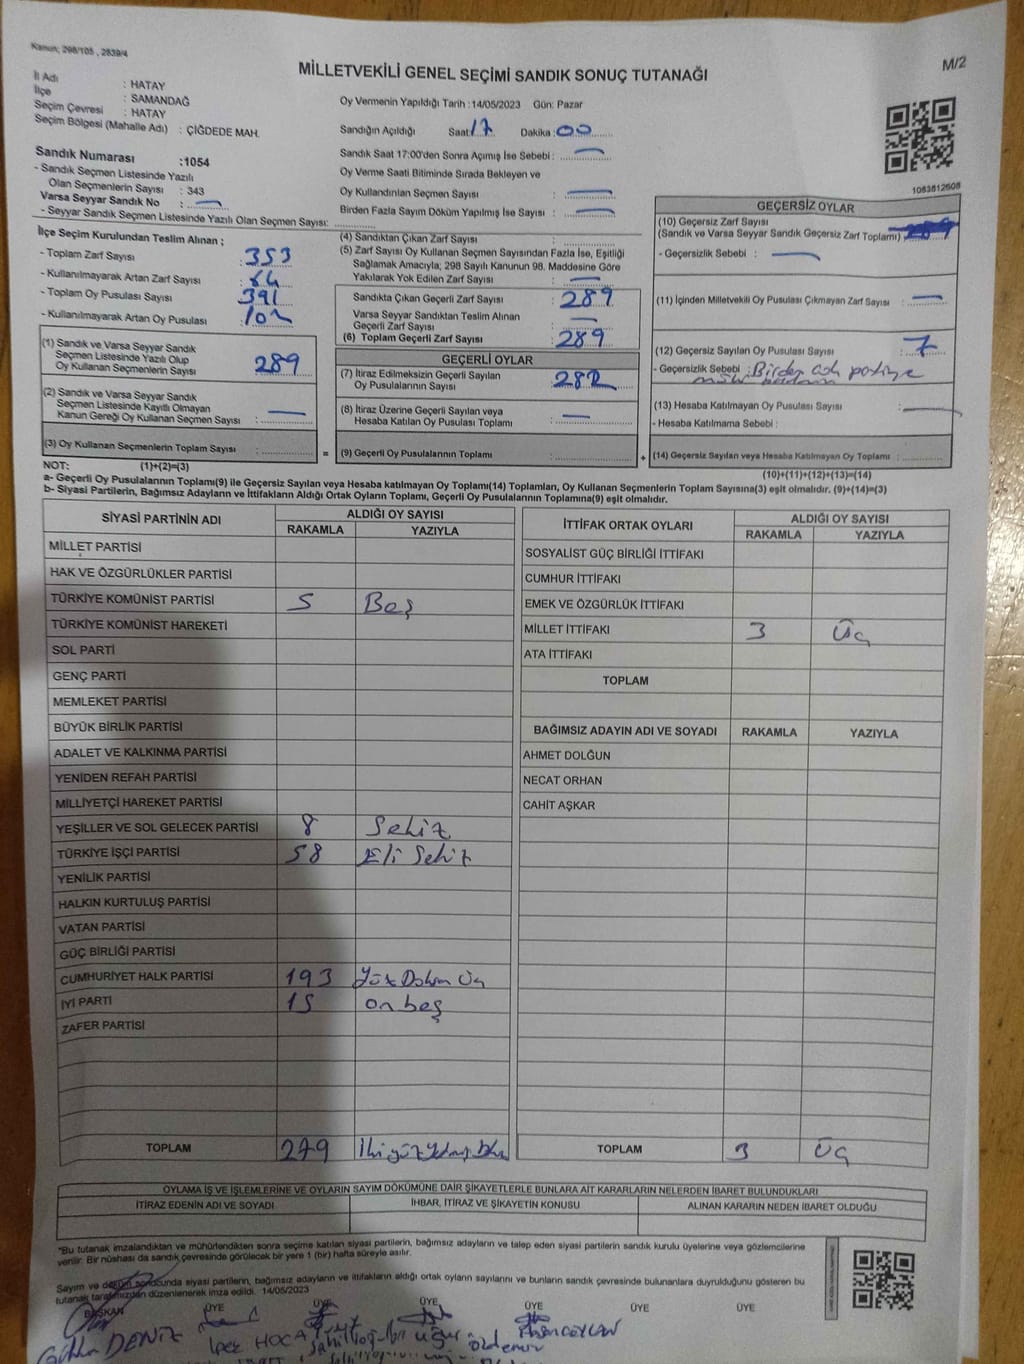 Kanun; 298/105 , 2839/4
M/2
MİLLETVEKİLİ GENEL SEÇİMİ SANDIK SONUÇ TUTANAĞI
İl Adı : HATAY
İlçe : SAMANDAĞ
Seçim Çevresi : HATAY
Seçim Bölgesi (Mahalle Adı) : ÇİĞDEDE MAH.
Sandık Numarası :1054
- Sandık Seçmen Listesinde Yazılı
Olan Seçmenlerin Sayısı : 343
Varsa Seyyar Sandık No : —
- Seyyar Sandık Seçmen Listesinde Yazılı Olan Seçmen Sayısı:
Oy Vermenin Yapıldığı Tarih :14/05/2023 Gün: Pazar
Sandığın Açıldığı Saat 17 Dakika : 00
Sandık Saat 17:00'den Sonra Açımış İse Sebebi : —
Oy Verme Saati Bitiminde Sırada Bekleyen ve
Oy Kullandırılan Seçmen Sayısı : —
Birden Fazla Sayım Döküm Yapılmış İse Sayısı : —
1083812608
İlçe Seçim Kurulundan Teslim Alınan ;
- Toplam Zarf Sayısı : 353
- Kullanılmayarak Artan Zarf Sayısı : 64
- Toplam Oy Pusulası Sayısı : 391
- Kullanılmayarak Artan Oy Pusulası : 102
(1) Sandık ve Varsa Seyyar Sandık
Seçmen Listesinde Yazılı Olup
Oy Kullanan Seçmenlerin Sayısı : 289
(2) Sandık ve Varsa Seyyar Sandık
Seçmen Listesinde Kayıtlı Olmayan
Kanun Gereği Oy Kullanan Seçmen Sayısı : —
(3) Oy Kullanan Seçmenlerin Toplam Sayısı :
(4) Sandıktan Çıkan Zarf Sayısı :
(5) Zarf Sayısı Oy Kullanan Seçmen Sayısından Fazla İse, Eşitliği
Sağlamak Amacıyla; 298 Sayılı Kanunun 98. Maddesine Göre
Yakılarak Yok Edilen Zarf Sayısı : —
Sandıkta Çıkan Geçerli Zarf Sayısı : 289
Varsa Seyyar Sandıktan Teslim Alınan
Geçerli Zarf Sayısı : —
(6) Toplam Geçerli Zarf Sayısı : 289
GEÇERLİ OYLAR
(7) İtiraz Edilmeksizin Geçerli Sayılan
Oy Pusulalarının Sayısı : 282
(8) İtiraz Üzerine Geçerli Sayılan veya
Hesaba Katılan Oy Pusulası Toplamı : —
= (9) Geçerli Oy Pusulalarının Toplamı :
GEÇERSİZ OYLAR
(10) Geçersiz Zarf Sayısı
(Sandık ve Varsa Seyyar Sandık Geçersiz Zarf Toplamı)
- Geçersizlik Sebebi : —
(11) İçinden Milletvekili Oy Pusulası Çıkmayan Zarf Sayısı : —
(12) Geçersiz Sayılan Oy Pusulası Sayısı : 7
- Geçersizlik Sebebi : Birden
(13) Hesaba Katılmayan Oy Pusulası Sayısı : —
- Hesaba Katılmama Sebebi :
+ (14) Geçersiz Sayılan veya Hesaba Katılmayan Oy Toplamı :
NOT: (1)+(2)=(3) (10)+(11)+(12)+(13)=(14)
a- Geçerli Oy Pusulalarının Toplamı(9) ile Geçersiz Sayılan veya Hesaba katılmayan Oy Toplamı(14) Toplamları, Oy Kullanan Seçmenlerin Toplam Sayısına(3) eşit olmalıdır. (9)+(14)=(3)
b- Siyasi Partilerin, Bağımsız Adayların ve İttifakların Aldığı Ortak Oyların Toplamı, Geçerli Oy Pusulalarının Toplamına(9) eşit olmalıdır.
SİYASİ PARTİNİN ADI ALDIĞI OY SAYISI
RAKAMLA YAZIYLA
MİLLET PARTİSİ
HAK VE ÖZGÜRLÜKLER PARTİSİ
TÜRKİYE KOMÜNİST PARTİSİ 5 Beş
TÜRKİYE KOMÜNİST HAREKETİ
SOL PARTİ
GENÇ PARTİ
MEMLEKET PARTİSİ
BÜYÜK BİRLİK PARTİSİ
ADALET VE KALKINMA PARTİSİ
YENİDEN REFAH PARTİSİ
MİLLİYETÇİ HAREKET PARTİSİ
YEŞİLLER VE SOL GELECEK PARTİSİ 8 Sekiz
TÜRKİYE İŞÇİ PARTİSİ 58 Eli Sekiz
YENİLİK PARTİSİ
HALKIN KURTULUŞ PARTİSİ
VATAN PARTİSİ
GÜÇ BİRLİĞİ PARTİSİ
CUMHURİYET HALK PARTİSİ 193 Yüz Doksan Üç
İYİ PARTİ 15 on beş
ZAFER PARTİSİ
TOPLAM 279
İTTİFAK ORTAK OYLARI ALDIĞI OY SAYISI
RAKAMLA YAZIYLA
SOSYALİST GÜÇ BİRLİĞİ İTTİFAKI
CUMHUR İTTİFAKI
EMEK VE ÖZGÜRLÜK İTTİFAKI
MİLLET İTTİFAKI 3 Üç
ATA İTTİFAKI
TOPLAM
BAĞIMSIZ ADAYIN ADI VE SOYADI RAKAMLA YAZIYLA
AHMET DOLĞUN
NECAT ORHAN
CAHİT AŞKAR
TOPLAM 3 Üç
OYLAMA İŞ VE İŞLEMLERİNE VE OYLARIN SAYIM DÖKÜMÜNE DAİR ŞİKAYETLERLE BUNLARA AİT KARARLARIN NELERDEN İBARET BULUNDUKLARI
İTİRAZ EDENİN ADI VE SOYADI İHBAR, İTİRAZ VE ŞİKAYETİN KONUSU ALINAN KARARIN NEDEN İBARET OLDUĞU
"Bu tutanak imzalandıktan ve mühürlendikten sonra seçime katılan siyasi partilerin, bağımsız adayların ve talep eden siyasi partilerin sandık kurulu üyelerine veya gözlemcilerine
verilir. Bir nüshası da sandık çevresinde görülecek bir yere 1 (bir) hafta süreyle asılır.
Sayım ve döküm sonucunda siyasi partilerin, bağımsız adayların ve ittifakların aldığı ortak oyların sayılarını ve bunların sandık çevresinde bulunanlara duyrulduğunu gösteren bu
tutanak tarafımızdan düzenlenerek imza edildi. 14/05/2023
BAŞKAN ÜYE ÜYE ÜYE ÜYE ÜYE ÜYE
DENİZ İpek HOCA Uğur Özdemir